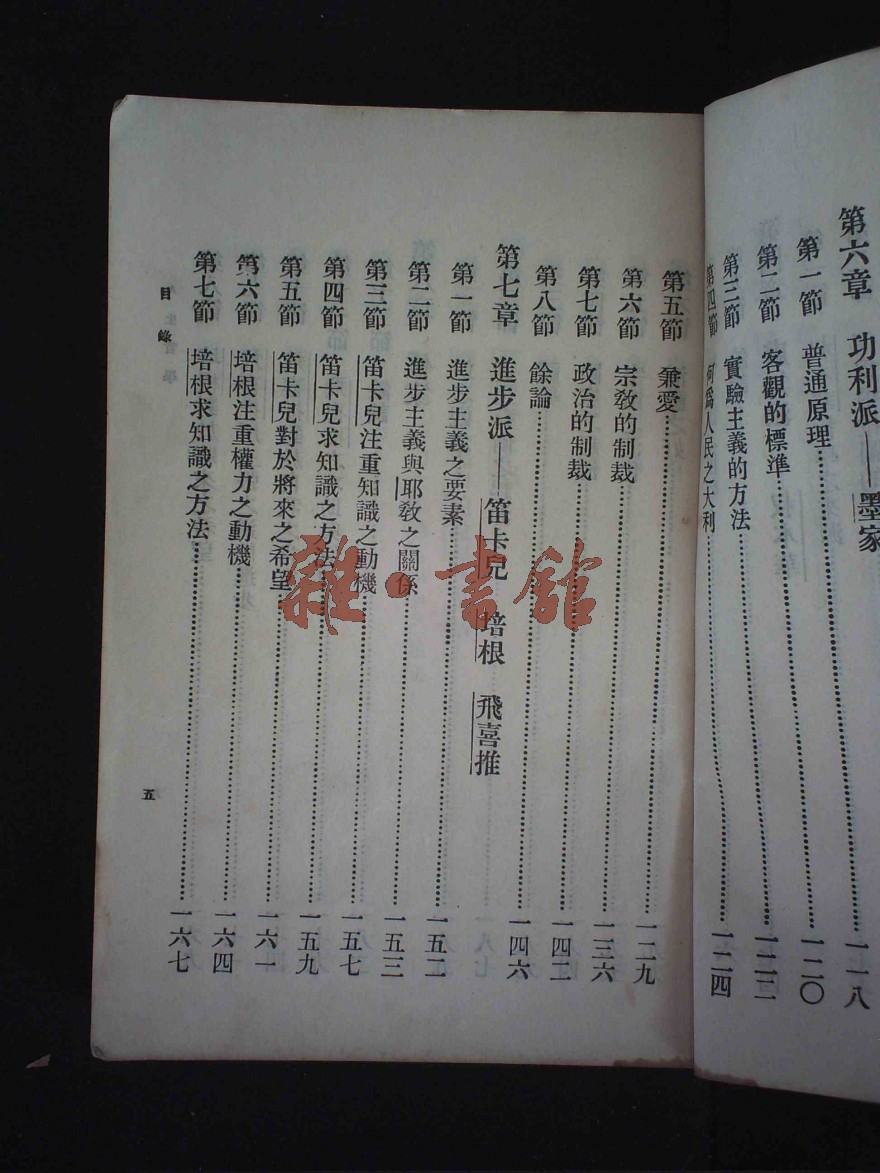 第六章 功利派——墨家……一一八
第一節 普通原理……一二〇
第二節 客觀的標準……一二三
第三節 實驗主義的方法……一二四
第四節 何爲人民之大利……
第五節 兼愛……一二九
第六節 宗教的制裁……一三六
第七節 政治的制裁……一四二
第八節 餘論……一四六
第七章 進步派——笛卡兒 培根 飛喜推
第一節 進步主義之要素……一五二
第二節 進步主義與耶教之關係……一五三
第三節 笛卡兒注重知識之動機……一五七
第四節 笛卡兒求知識之方法……一五九
第五節 笛卡兒對於將來之希望……一六一
第六節 培根注重權力之動機……一六四
第七節 培根求知識之方法……一六七
目錄
五
雜·書館